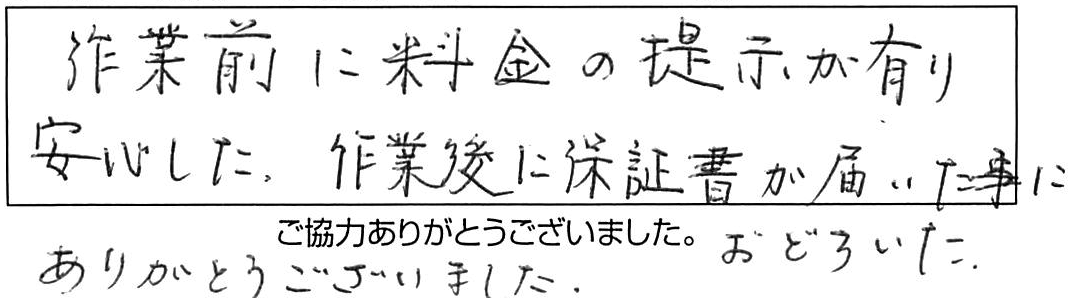 作業前に料金の提示が有り
安心した。作業後に保証書が届いた事に
おどろいた。
ご協力ありがとうございました。
ありがとうございました.